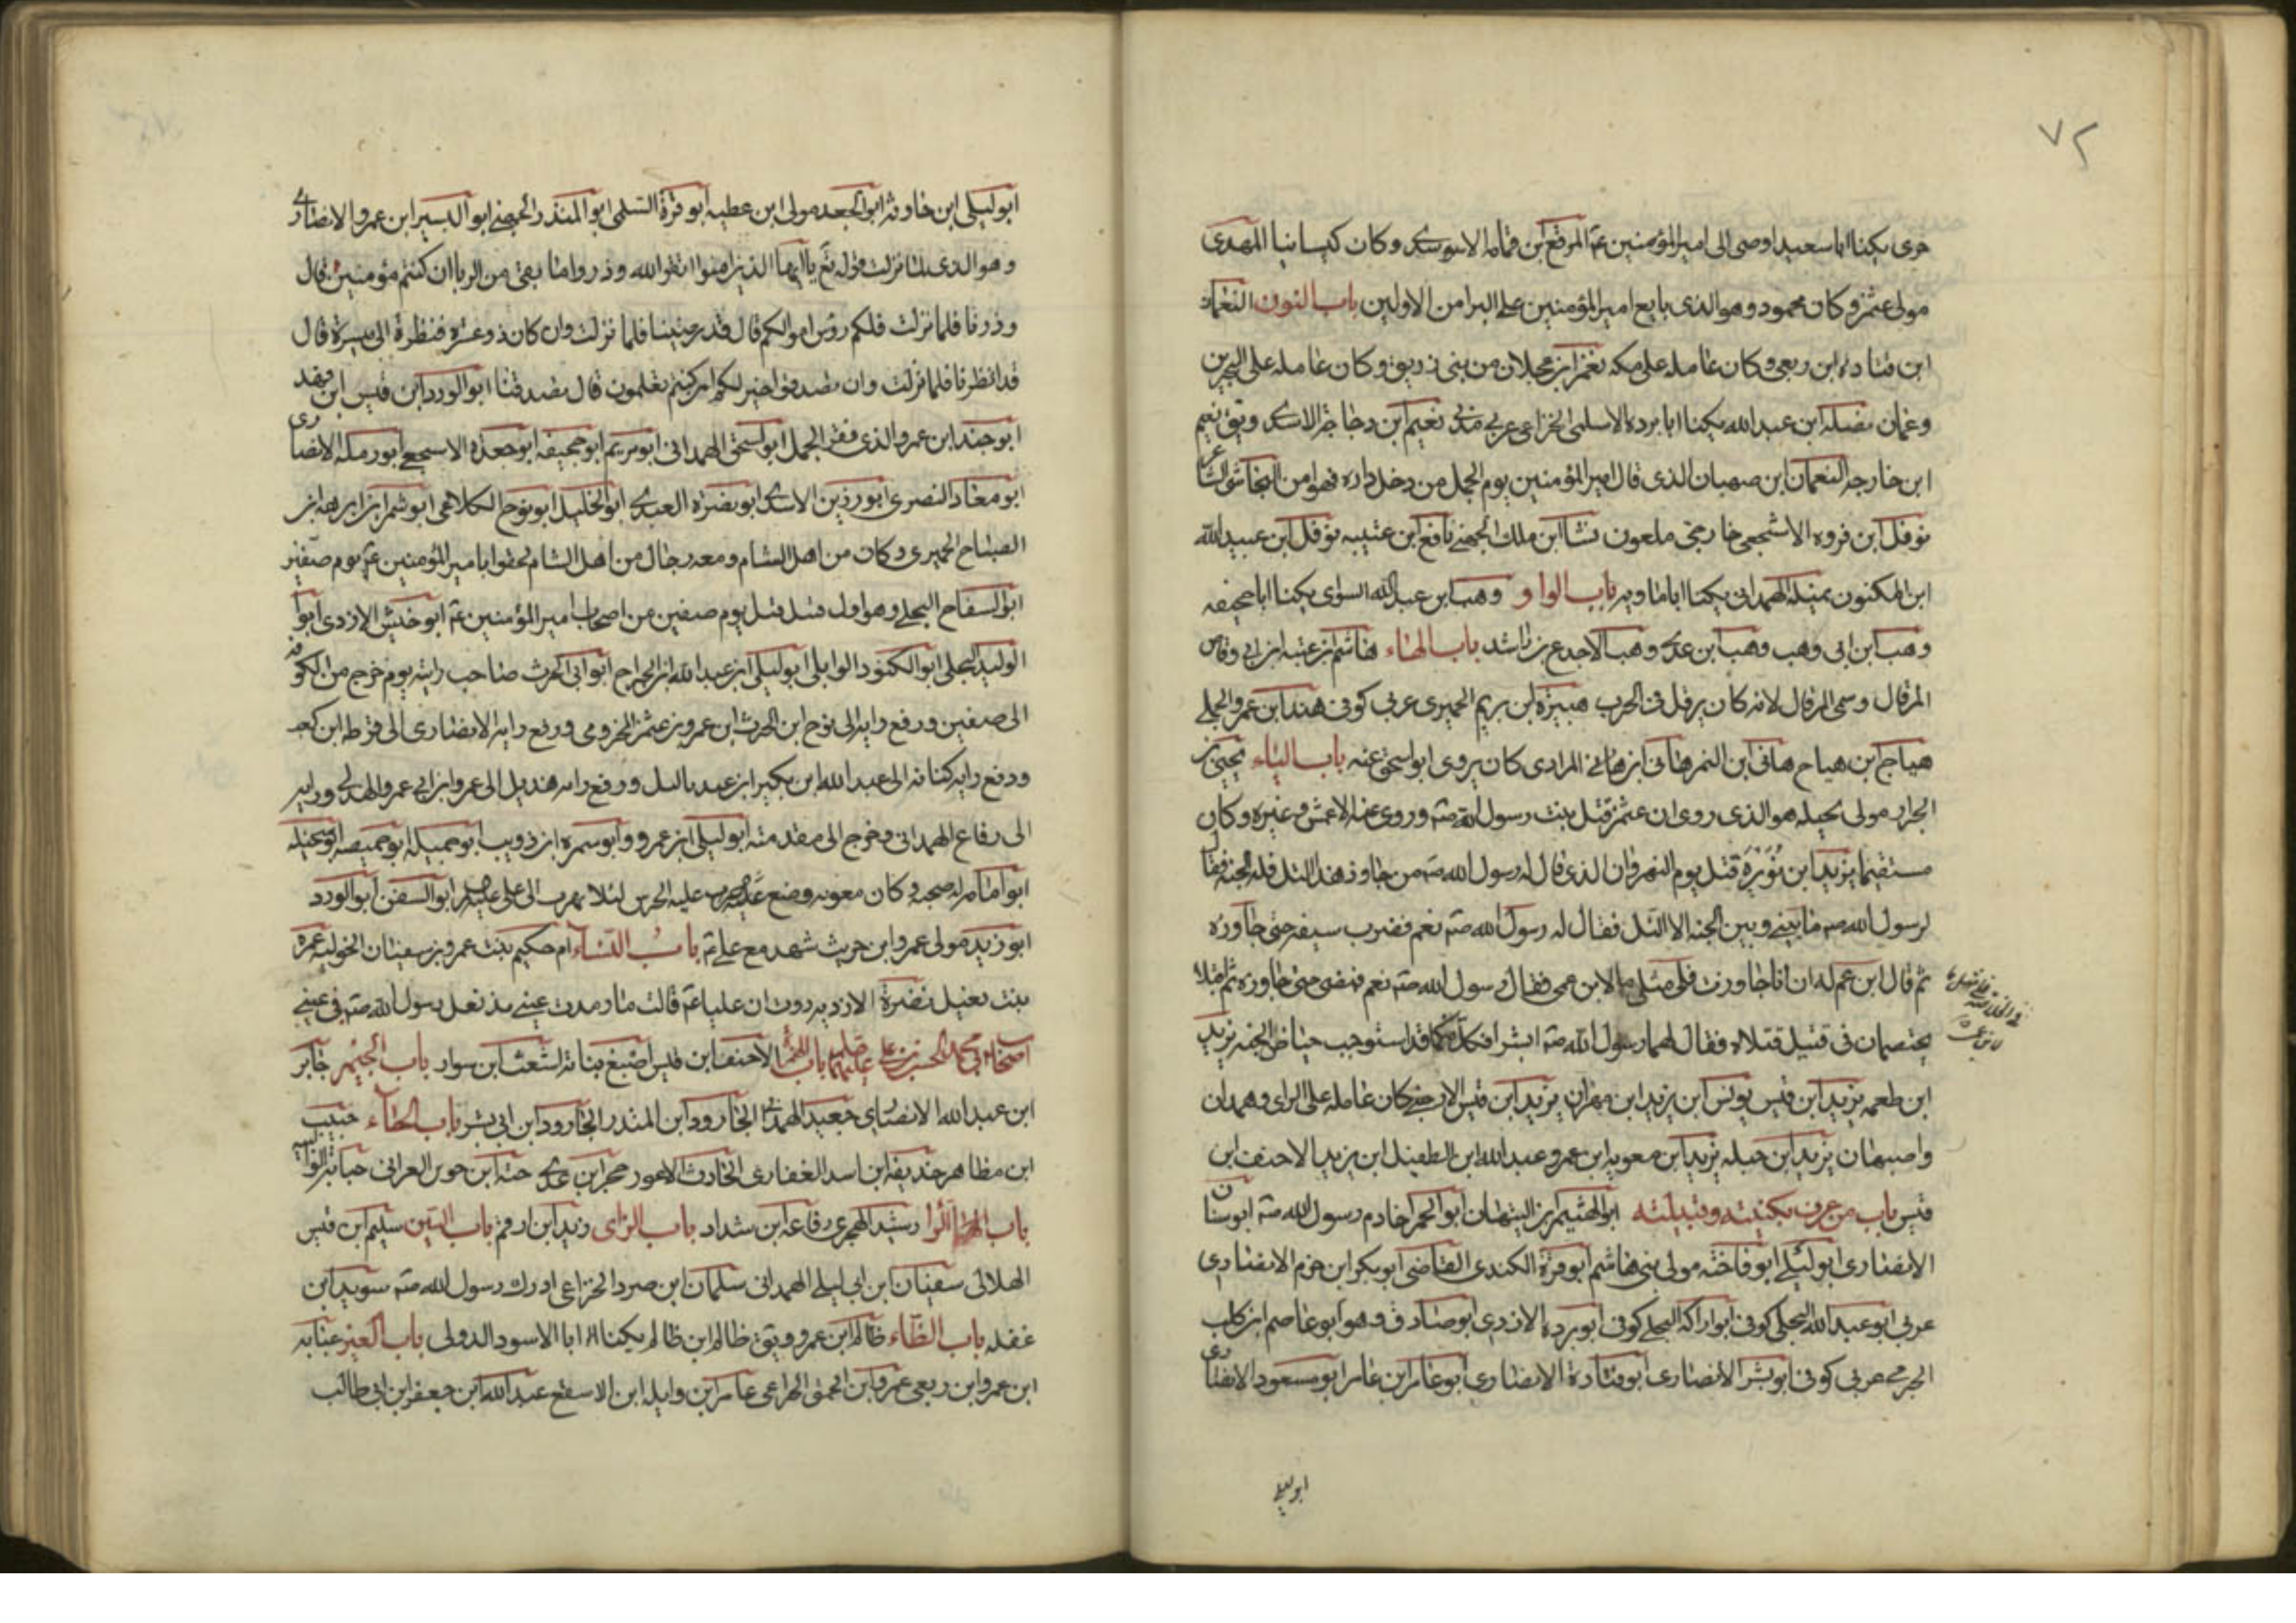 ٧٢
حرى يكينا اباسعيد اوصى الى امير المؤمنين عم المرقع ابن قمامه الاسدى وكان كيسانيا المهدى
مولى عثمن وكان محمود وهو الذى بايع امير المؤمنين على البرا من الاولين باب النون النعمان
ابن قتاده ابن ربعى وكان عامله على مكه نعمن ابن عجلان من بنى زريق وكان عامله على البحرين
وعمان نضله ابن عبد الله يكينا ابا برده الاسلمى الخزاعى عربى مدنى نعيم ابن دجاجه الاسدى ويق نعيم
ابن خارجه النعمان ابن صهبان الذى قال امير المؤمنين يوم الجمل من دخل داره فهو امن النجاشى الشاعر
نوفل ابن فروه الاشجعى خارجى ملعون نشا ابن ملك الجهنى نافع ابن عتيبه نوفل ابن عبيد الله
ابن المكنون نميله الهمدانى يكينا اباماويه باب الواو وهب ابن عبد الله السوى يكينا ابا جحيفه
وهب ابن ابى وهب وهب ابن عدى وهب الاجدع بن راشد باب الهاء هاشم ابن عتبه ابن ابى وقاص
المرقال وسمى المرقال لانه كان يرقل فى الحرب هبيرة ابن بريم الحميرى عربى كوفى هند ابن عمرو الجملى
هياج ابن هياج هانى ابن النمر هانى ابن هانى المرادى كان يروى ابواسحق عنه باب الياء يحيى بن
الجزار مولى بجيله هو الذى روى ان عثمن قتل بنت رسول الله صه وروى عنه الاعمش وغيره وكان
مستقيما يزيد ابن نُوَيْرَة قتل يوم النهروان الذى قال له رسول الله صه من جاوز هذا التل فله الجنه فقال
لرسول الله صه ما بينى وبين الجنه الا التل فقال له رسول الله صه نعم فضرب سيفه حتى جاوزه
ثم قال ابن عم له ان انا جاوزت فلى مثل ما لابن عمى فقال رسول الله صه نعم فمضى حتى جاوزه ثم اقبلا
يختصمان فى قتيل قتلاه فقال لهما رسول الله صه ابشرا فكلاكما قد استوجب حياض الجنه يزيد
ابن طعمه يزيد ابن قيس يونس ابن يزيد ابن مهران يزيد ابن قيس الارحبى كان عامله على الراى وهمدان
واصبهان يزيد ابن جبله يزيد ابن معويه ابن عمرو عبد الله ابن الطفيل ابن يزيد الاحنف ابن
قيس باب من عرف بكنيته وقبيلته ابو الهثيم ابن التيهان ابو الحمرا خادم رسول الله صه ابوسنان
الانصارى ابوليلى ابو فاخته مولى بنى هاشم ابو قرة الكندى القاضى ابوبكر ابن حزم الانصارى
عربى ابو عبد الله البجلى كوفى ابو اراكه البجلى كوفى ابو برده الازدى ابو صادق وهو ابو عاصم ابن كليب
الجرمى عربى كوفى ابو بشر الانصارى ابو قتادة الانصارى ابو عامر ابن عامر ابو مسعود الانصارى
ابوليلى
ابوليلى ابن حاوثه ابو الجعد مولى ابن عطيه ابو قرة السلمى ابو المنذر الجهنى ابو اليسير ابن عمرو الانصارى
وهو الذى لما نزلت قوله تع يا ايها الذين امنوا اتقوا الله وذروا ما بقى من الربا ان كنتم مؤمنين قال
وذرنا فلما نزلت فلكم رؤس اموالكم قال قد رضينا فلما نزلت وان كان ذو عسرة فنظرة الى ميسرة قال
قد انظرنا فلما نزلت وان تصدقوا خير لكم ان كنتم تعلمون قال تصدقنا ابو الورد ابن قيس ابن فهد
ابو جند ابن عمرو الذى عقر الجمل ابو اسحق الهمدانى ابو مريم ابو جحيفه ابو جعدة الاشجعى ابو رمله الانصارى
ابو معاد النصرى ابو رزين الاسدى ابو نضرة العبدى ابو الخليل ابو نوح الكلاعى ابو شمر ابن ابرهه ابن
الصباح الحميرى وكان من اهل الشام ومعه رجال من اهل الشام لحقوا بامير المؤمنين عم يوم صفين
ابو السفاح البجلى وهو اول قتيل قتل يوم صفين من اصحاب امير المؤمنين عم ابو حنيش الازدى ابو
الوليد البجلى ابو الكنود الوابلى ابو ليلى ابن عبد الله ابن الجراح ابو ابى الحرث صاحب رايته يوم خرج من الكوفه
الى صفين ورفع رايه الى نوح ابن الحرث ابن عمرو بن عثمن المخزومى ورفع راية الانصارى الى قرظه ابن كعب
ودفع رايه كنانه الى عبد الله ابن بكير ابن عبد ياليل ورفع رايه هذيل الى عمرو ابن ابى عمرو الهذلى ورايه
الى رفاع الهمدانى وخرج الى مقدمته ابو ليلى ابن عمرو وابو سمره ابن ذويب ابو جميله ابو حميصه
ابو امامه له صحبه وكان معويه وضع عليه الحرس لئلا يهرب الى على ابو السفن ابو الورد
ابو زيد مولى عمرو ابن حريث شهد مع على عم باب النساء ام حكيم بنت عمرو بن سفيان الخوليه عمره
بنت نفيل نضرة الازديه روت ان عليا عم قالت ما رمدت عينى مذ تفل رسول الله صه فى عينى
اصحاب ابى محمد الحسن بن على عليهما باب الالف الاحنف ابن قيس اصبغ بناته اشعث ابن سوار باب الجيم جابر
ابن عبد الله الانصارى جعيد الهمدانى الجارود ابن المنذر الجارود ابن ابى بشر باب الحاء حبيب
ابن مظاهر حذيفه ابن اسد الغفارى الحارث الاعور حجر ابن عدى حبه ابن جوين العرانى حبابه الوالبيه
باب الرا رشيد الهجرى رفاعه ابن شداد باب الزاى زيد ابن ارقم باب السين سليم ابن قيس
الهلالى سفيان ابن ابى ليلى الهمدانى سلمان ابن صرد الخزاعى ادرك رسول الله صه سويد ابن
غفله باب الظاء ظالم ابن عمرو ويق ظالم ابن ظالم يكينا ابا الاسود الدولى باب العين عبايه
ابن عمرو ابن ربعى عمرو ابن الحمق الخزاعى عامر ابن وايله ابن الاسقع عبد الله ابن جعفر ابن ابى طالب